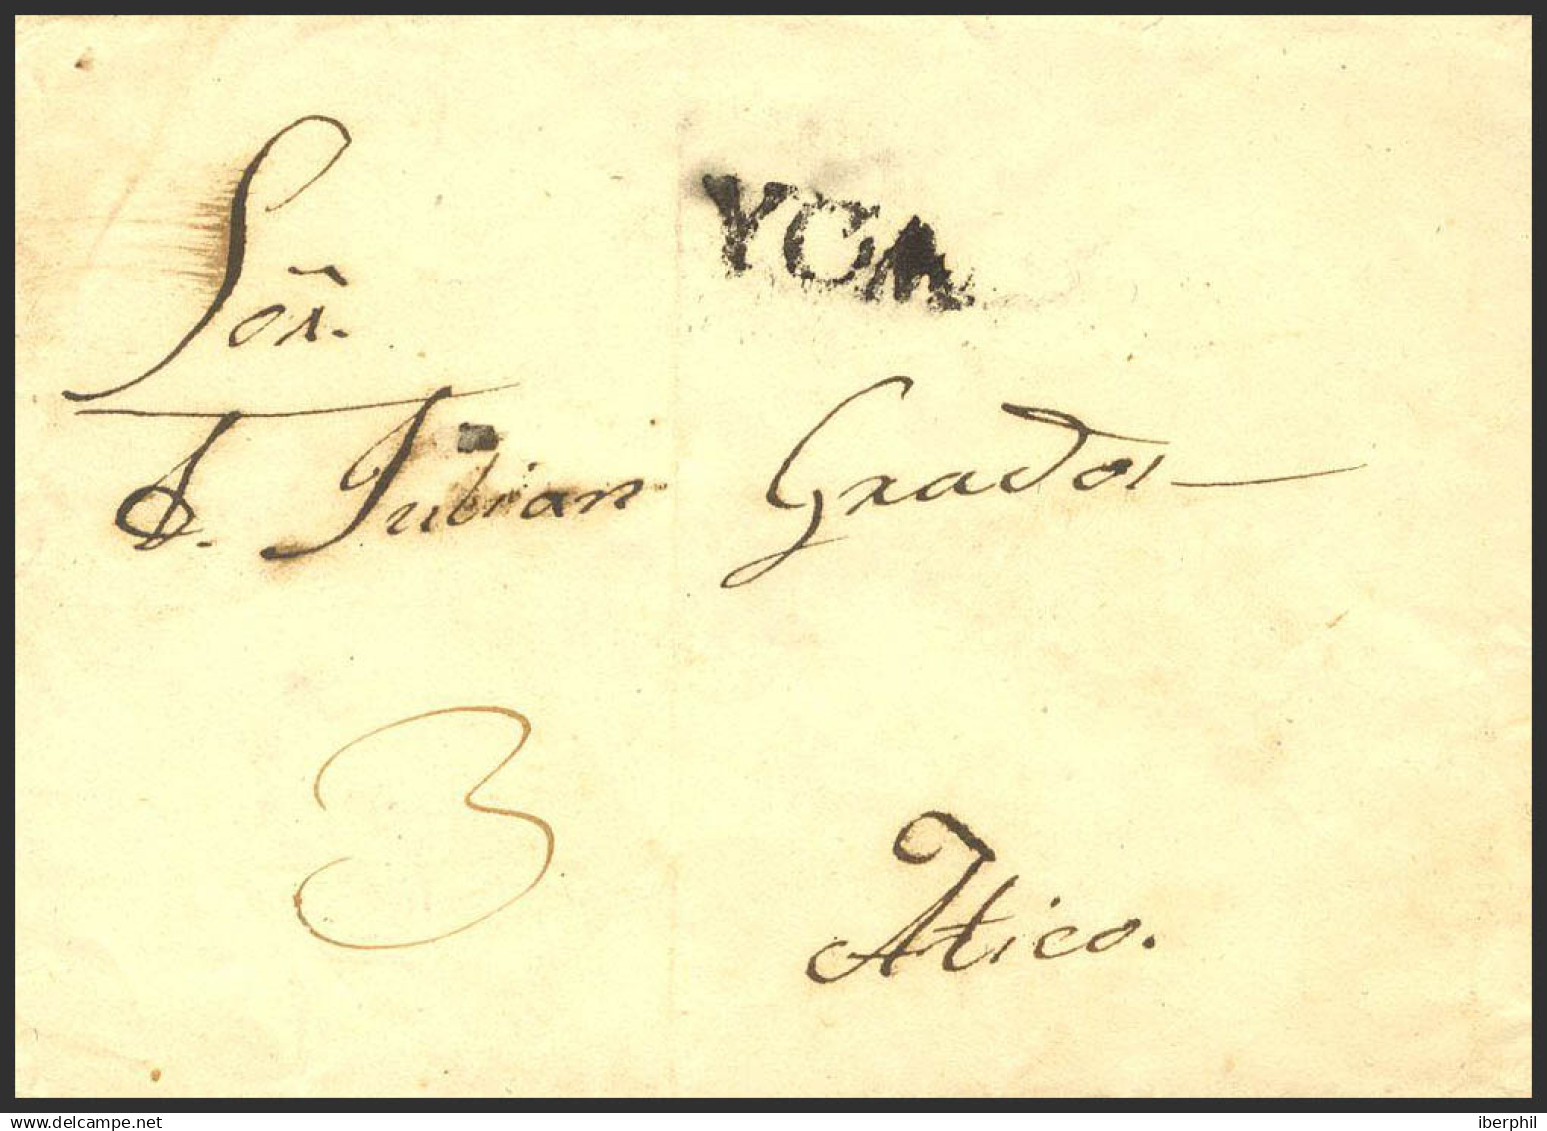 YCA
Sōr.
D. Julian Grados
3
Atico.
www.delcampe.net
iberphil